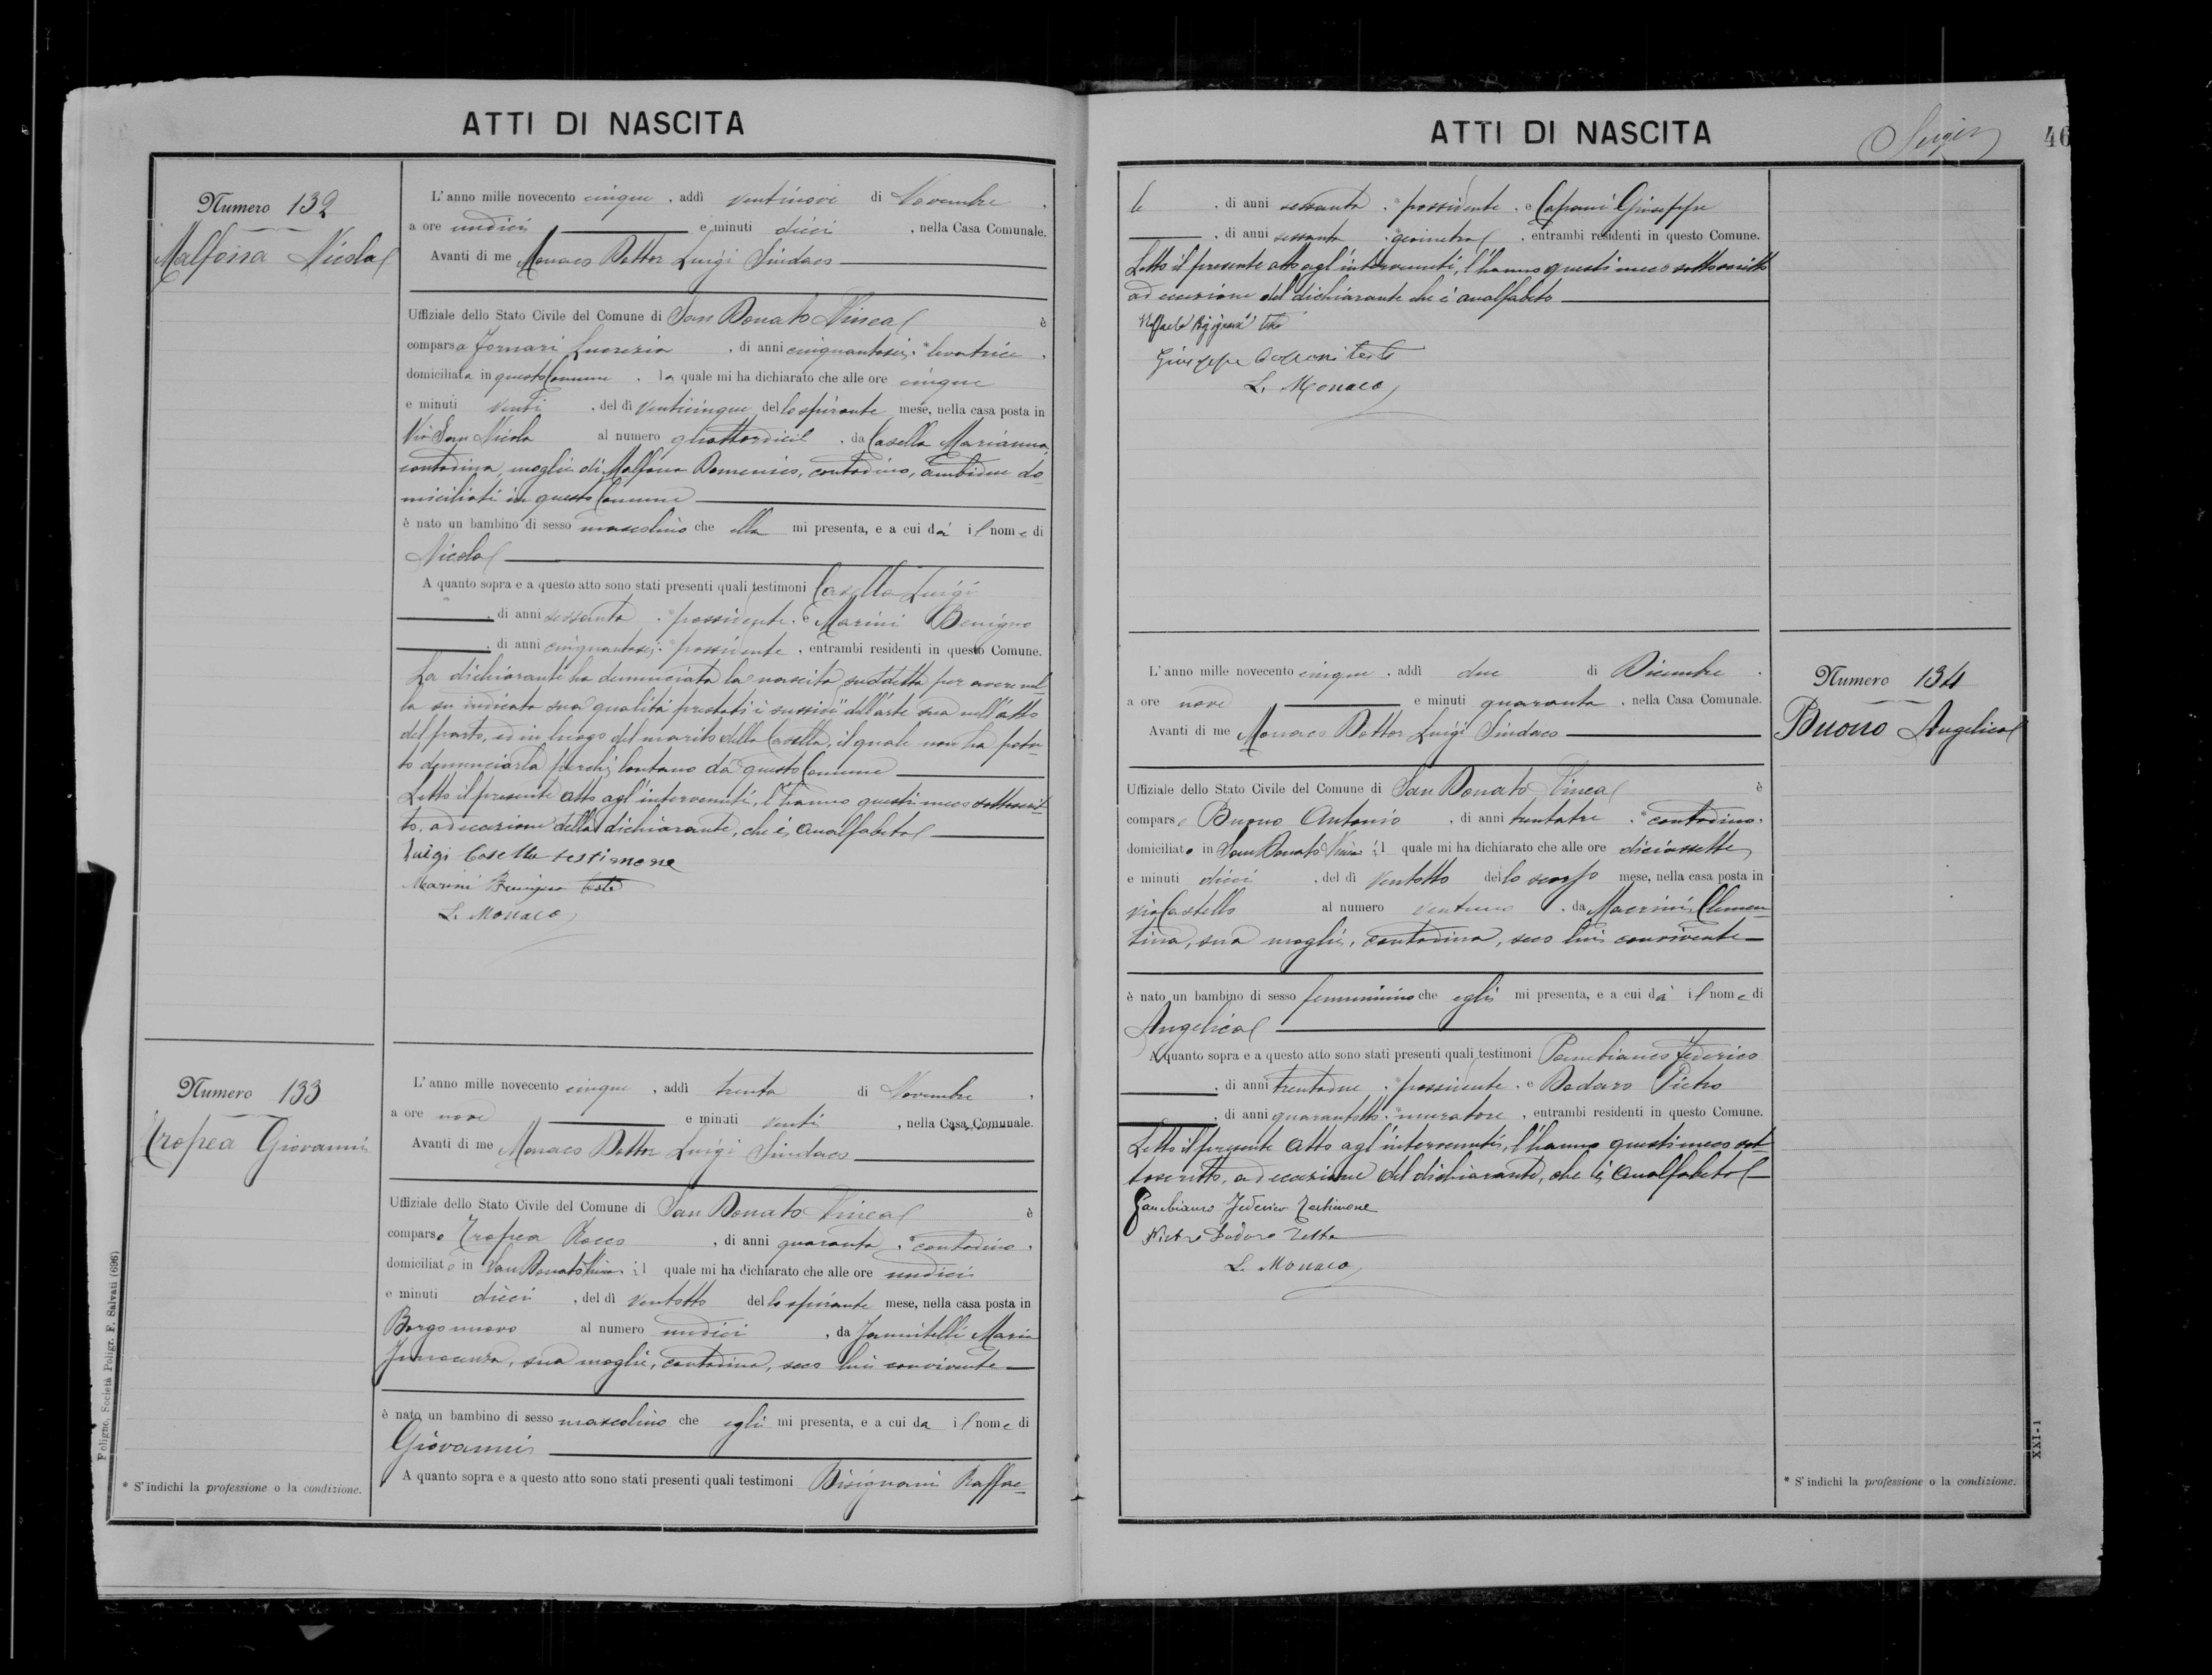 ATTI DI NASCITA
Numero 132
Malfona Nicola
L'anno mille novecento cinque, addì ventinove di Novembre,
a ore undici e minuti dieci, nella Casa Comunale.
Avanti di me Monaco Dottor Luigi Sindaco
Uffiziale dello Stato Civile del Comune di San Donato Ninea è
comparsa Fornari Lucrezia, di anni cinquantasei, * levatrice,
domiciliata in questo Comune, la quale mi ha dichiarato che alle ore cinque
e minuti venti, del dì venticinque dello spirante mese, nella casa posta in
Via San Nicola al numero quattordici, da Casella Marianna,
contadina, moglie di Malfona Domenico, contadino, ambidue do
miciliati in questo Comune
è nato un bambino di sesso mascolino che ella mi presenta, e a cui dà il nome di
Nicola
A quanto sopra e a questo atto sono stati presenti quali testimoni Casella Luigi
, di anni sessanta, * possidente, e Marini Benigno
, di anni cinquantasei, * possidente, entrambi residenti in questo Comune.
La dichiarante ha denunciata la nascita suddetta per avere nel
la su indicata sua qualità prestati i sussidi dell'arte sua nell'atto
del parto, ed in luogo del marito della Casella, il quale non ha potu
to denunciarla perchè lontano da questo Comune
Letto il presente atto agl'intervenuti, l'hanno questi meco sottoscrit
to, ad eccezione della dichiarante, che è analfabeta
Luigi Casella testimone
Marini Benigno teste
L. Monaco
Numero 133
Tropea Giovanni
L'anno mille novecento cinque, addì trenta di Novembre,
a ore nove e minuti venti, nella Casa Comunale.
Avanti di me Monaco Dottor Luigi Sindaco
Uffiziale dello Stato Civile del Comune di San Donato Ninea è
comparso Tropea Rocco, di anni quaranta, * contadino,
domiciliato in San Donato Ninea il quale mi ha dichiarato che alle ore undici
e minuti dieci, del dì ventotto dello spirante mese, nella casa posta in
Borgonuovo al numero undici, da Iannitelli Maria
Innocenza, sua moglie, contadina, seco lui convivente
è nato un bambino di sesso mascolino che egli mi presenta, e a cui da il nome di
Giovanni
A quanto sopra e a questo atto sono stati presenti quali testimoni Bisignani Raffae-
* S'indichi la professione o la condizione.
Foligno, Società Poligr. F. Salvati (696)
ATTI DI NASCITA
46
le, di anni sessanta, * possidente, e Capani Giuseppe
, di anni sessanta, * geometra, entrambi residenti in questo Comune.
Letto il presente atto agl'intervenuti, l'hanno questi meco sottoscritto
ad eccezione del dichiarante che è analfabeto
Raffaele teste
Giuseppe teste
L. Monaco
Numero 134
Buono Angelica
L'anno mille novecento cinque, addì due di Dicembre,
a ore nove e minuti quaranta, nella Casa Comunale.
Avanti di me Monaco Dottor Luigi Sindaco
Uffiziale dello Stato Civile del Comune di San Donato Ninea è
comparso Buono Antonio, di anni trentatre, * contadino,
domiciliato in San Donato Ninea il quale mi ha dichiarato che alle ore diciassette
e minuti dieci, del dì ventotto dello scorso mese, nella casa posta in
via Castello al numero ventuno, da Macrini Clemen
tina, sua moglie, contadina, seco lui convivente
è nato un bambino di sesso femminino che egli mi presenta, e a cui dà il nome di
Angelica
A quanto sopra e a questo atto sono stati presenti quali testimoni Panebianco Federico
, di anni trentadue, * possidente, e Dodaro Pietro
, di anni quarantotto, * muratore, entrambi residenti in questo Comune.
Letto il presente atto agl'intervenuti, l'hanno questi meco sot
toscritto, ad eccezione del dichiarante, che è analfabeto
Panebianco Federico Testimone
Pietro Dodaro Teste
L. Monaco
* S'indichi la professione o la condizione.
XXI-1